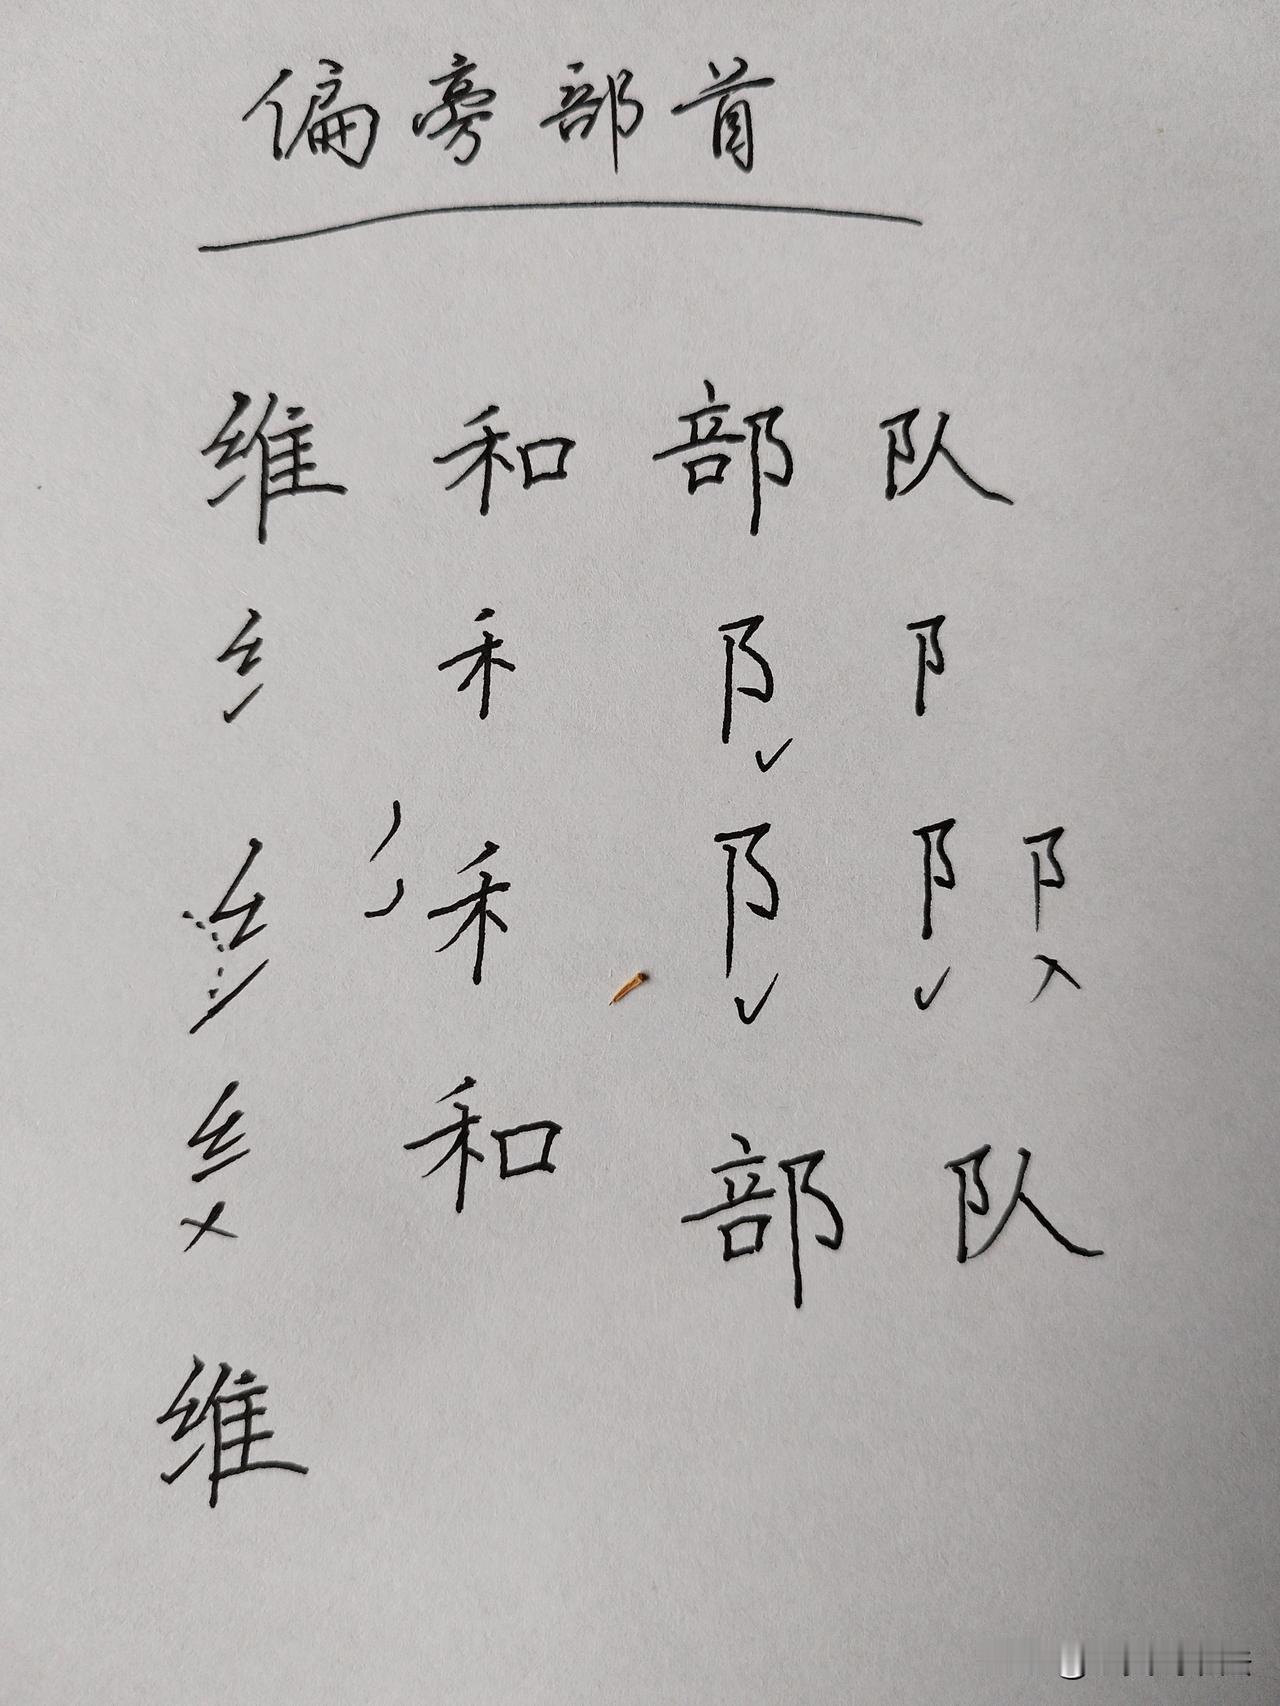 偏旁部首
维和部队
纟禾阝阝
纟禾阝阝阝
纟和部队
维